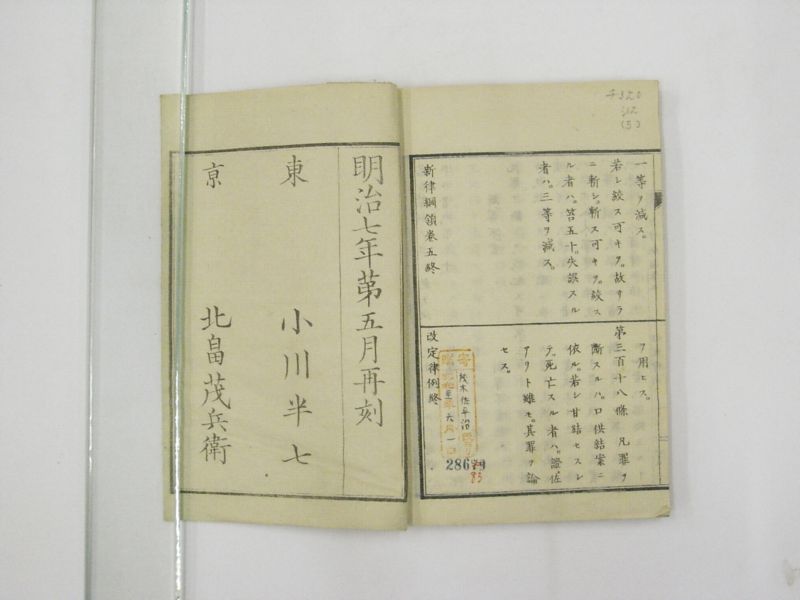 一等ヲ減ス。
若シ絞ス可キヲ。故サラ
ニ斬シ。斬ス可キヲ。絞ス
ル者ハ。笞五十。失誤スル
者ハ。三等ヲ減ス。
新律綱領巻五終
ヲ用ヒス。
第三百十八條 凡罪ヲ
断スルハ。口供結案ニ
依ル。若シ甘結セスシ
テ。死亡スル者ハ。證佐
アリト雖モ。其罪ヲ論
セス。
改定律例終
286
83
明治七年第五月再刻
東 小川半七
京 北畠茂兵衛
320
(5)